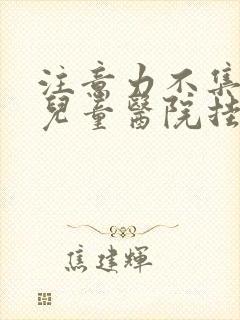 注意力不集
兒童醫院挂
焦建輝